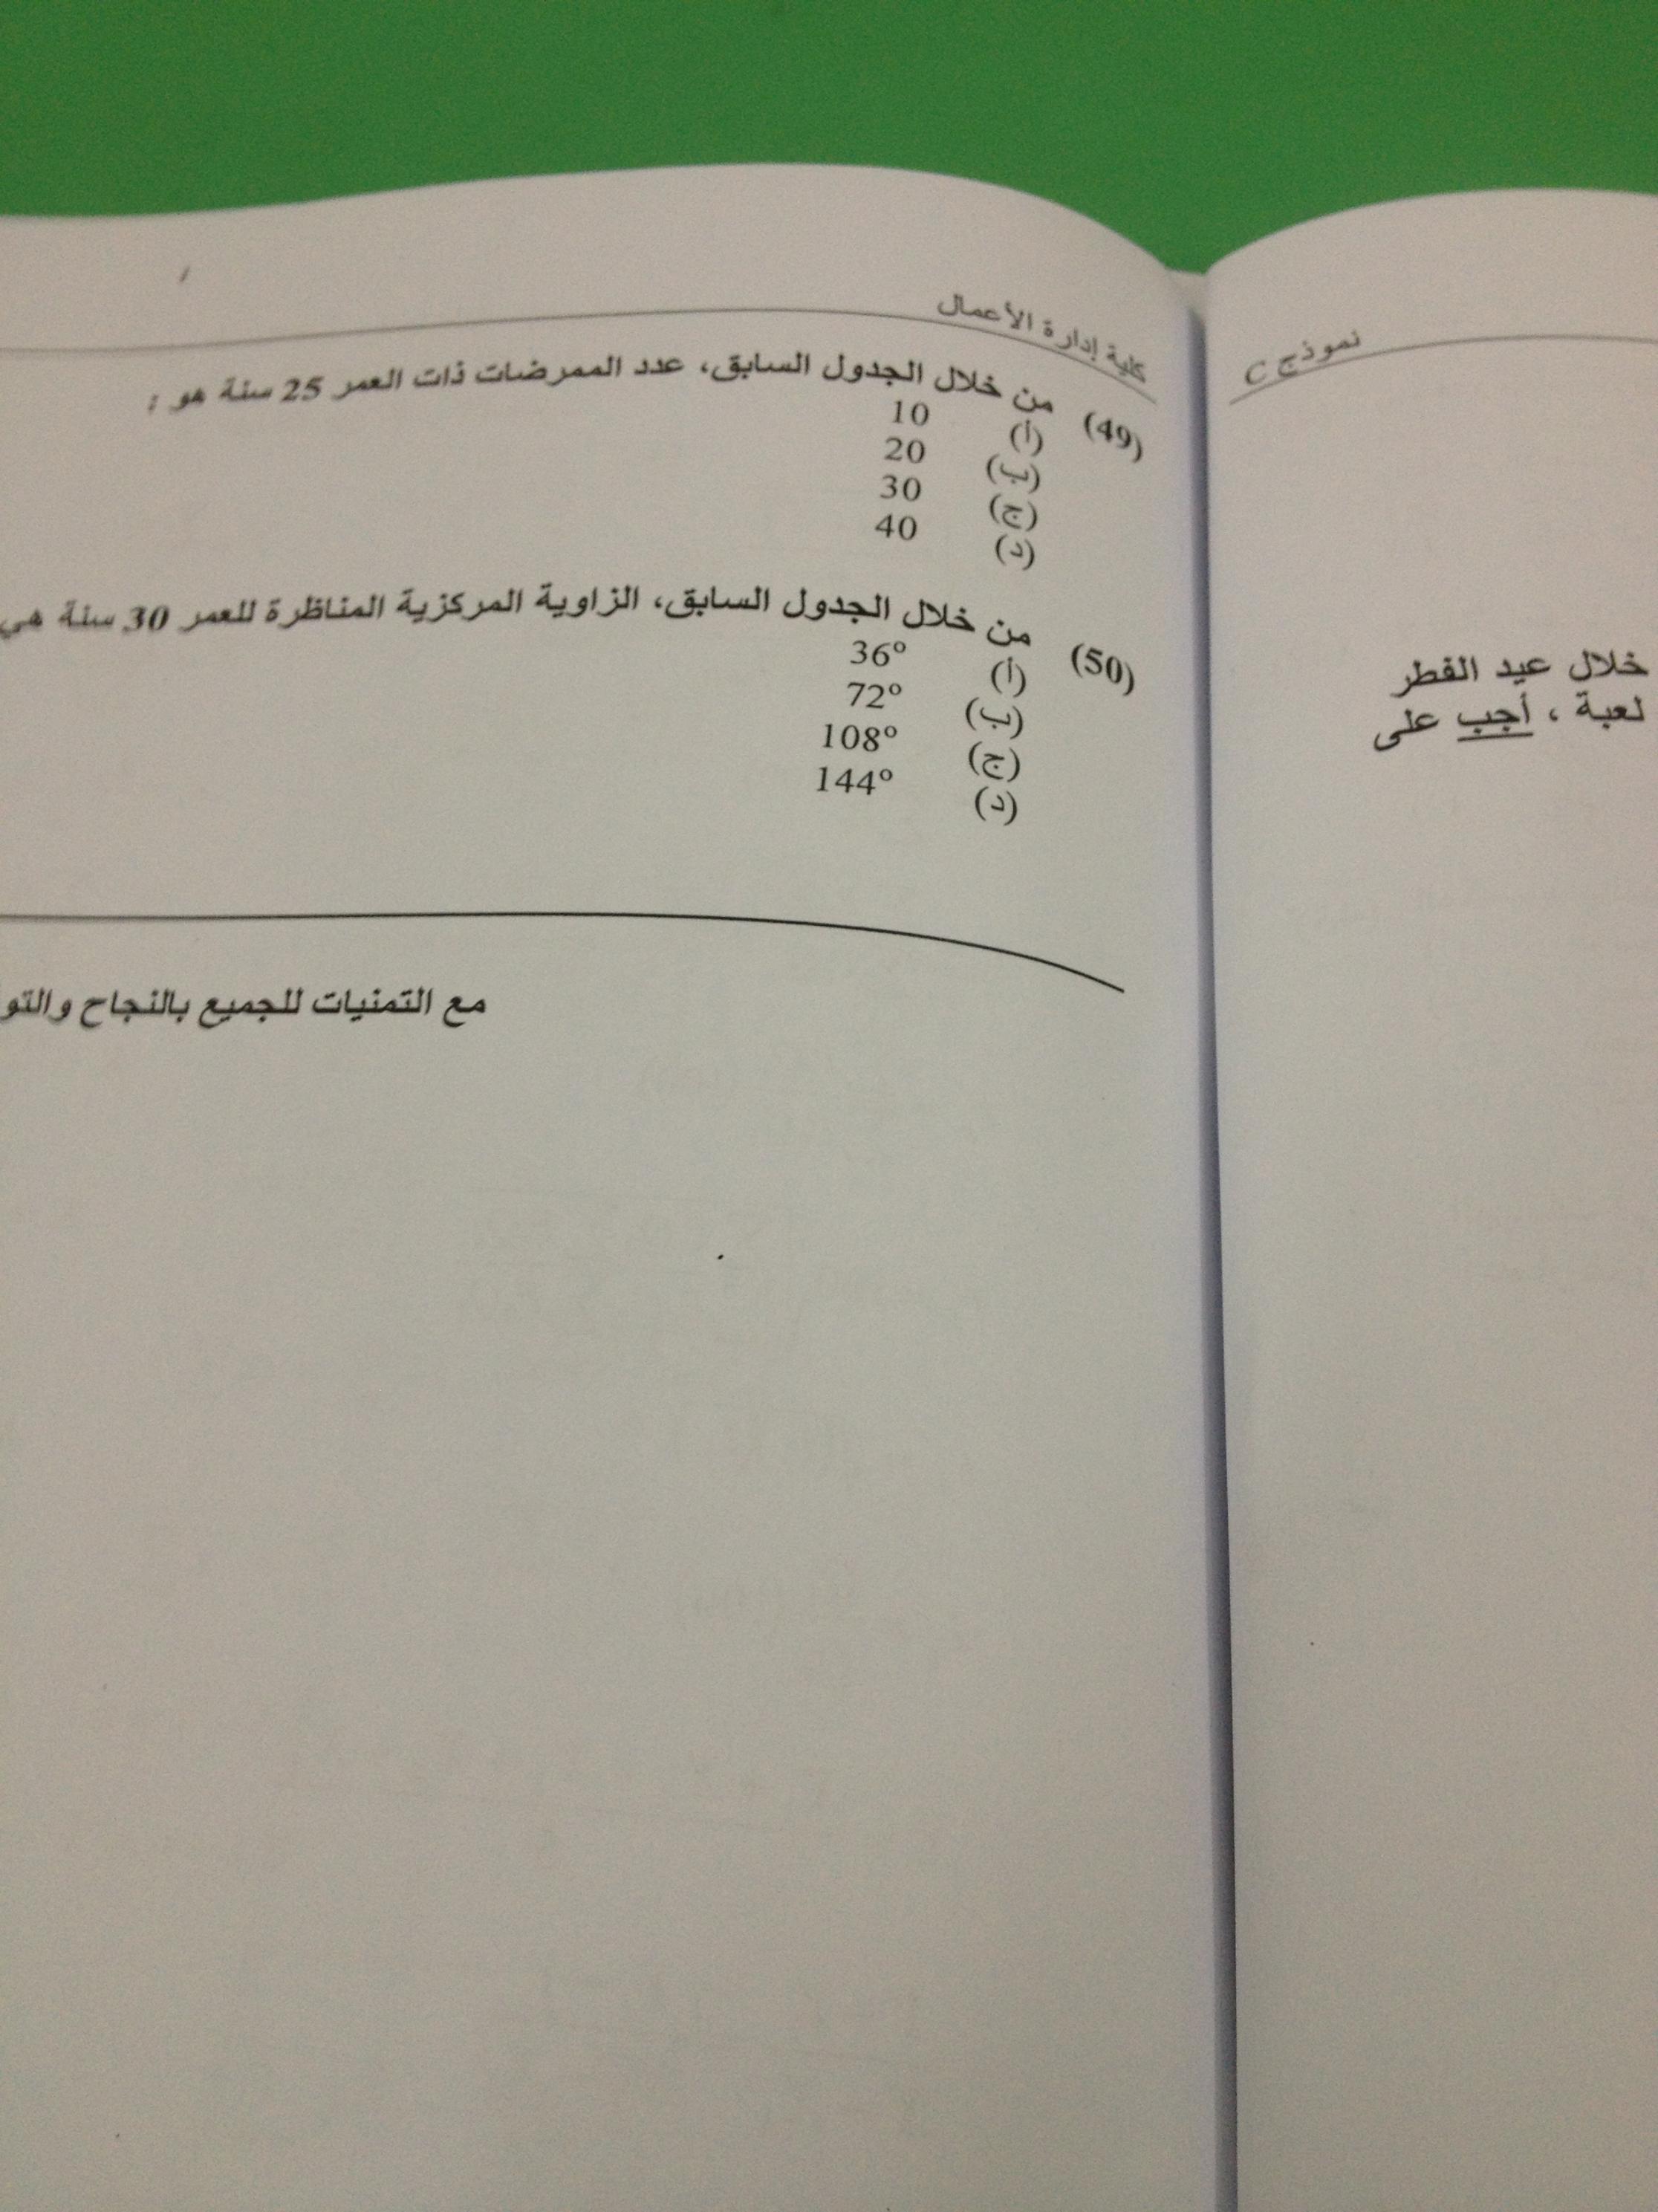 نموذج C
خلال عيد الفطر
لعبة ، أجب على
كلية إدارة الأعمال
(49) من خلال الجدول السابق، عدد الممرضات ذات العمر 25 سنة هو :
(أ) 10
(ب) 20
(ج) 30
(د) 40
(50) من خلال الجدول السابق، الزاوية المركزية المناظرة للعمر 30 سنة هي
(أ) 36°
(ب) 72°
(ج) 108°
(د) 144°
مع التمنيات للجميع بالنجاح والتو